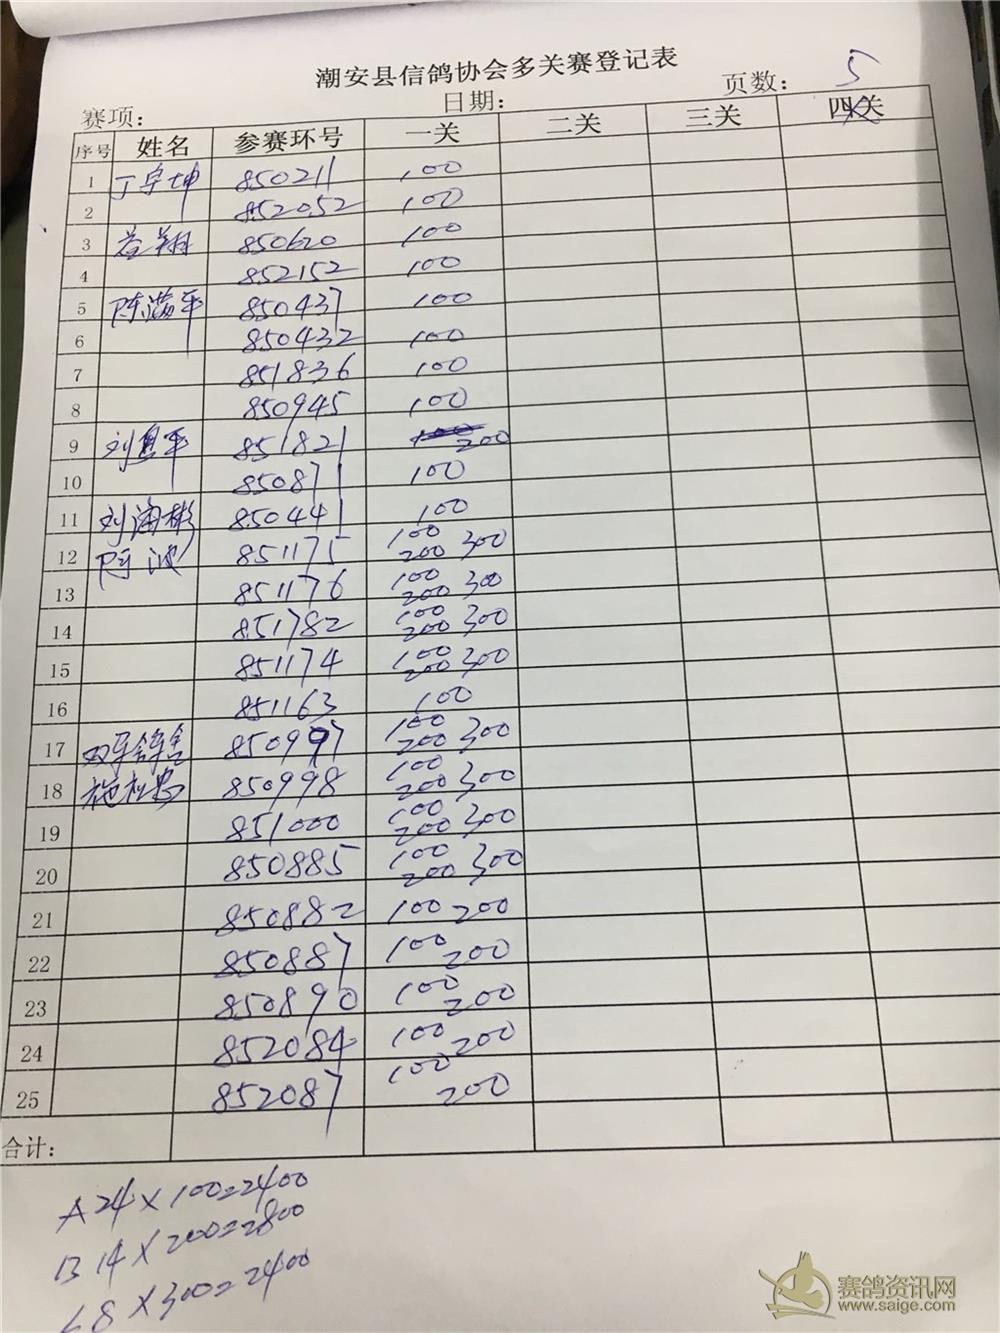 潮安县信鸽协会多关赛登记表
赛项: 日期: 页数: 5
序号 姓名 参赛环号 一关 二关 三关 四关
1 丁宇坤 850211 100
2 852052 100
3 850620 100
4 852152 100
5 850437 100
6 850432 100
7 851836 100
8 850945 100
9 851821 100 200
10 850871 100
11 850441 100
12 851175 100 200 300
13 851176 100 200 300
14 851782 100 200 300
15 851174 100 200 300
16 851163 100
17 850997 100 200 300
18 850998 100 200 300
19 851000 100 200 300
20 850885 100 200 300
21 850882 100 200
22 850887 100 200
23 850890 100 200
24 852084 100 200
25 852087 100 200
合计:
A 24×100=2400
B 14×200=2800
8×300=2400
赛鸽资讯网
www.saige.com